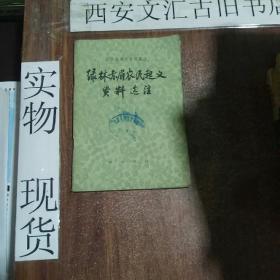 西安文汇古旧书店
实物
现货
绿林赤眉农民起义
资料选注